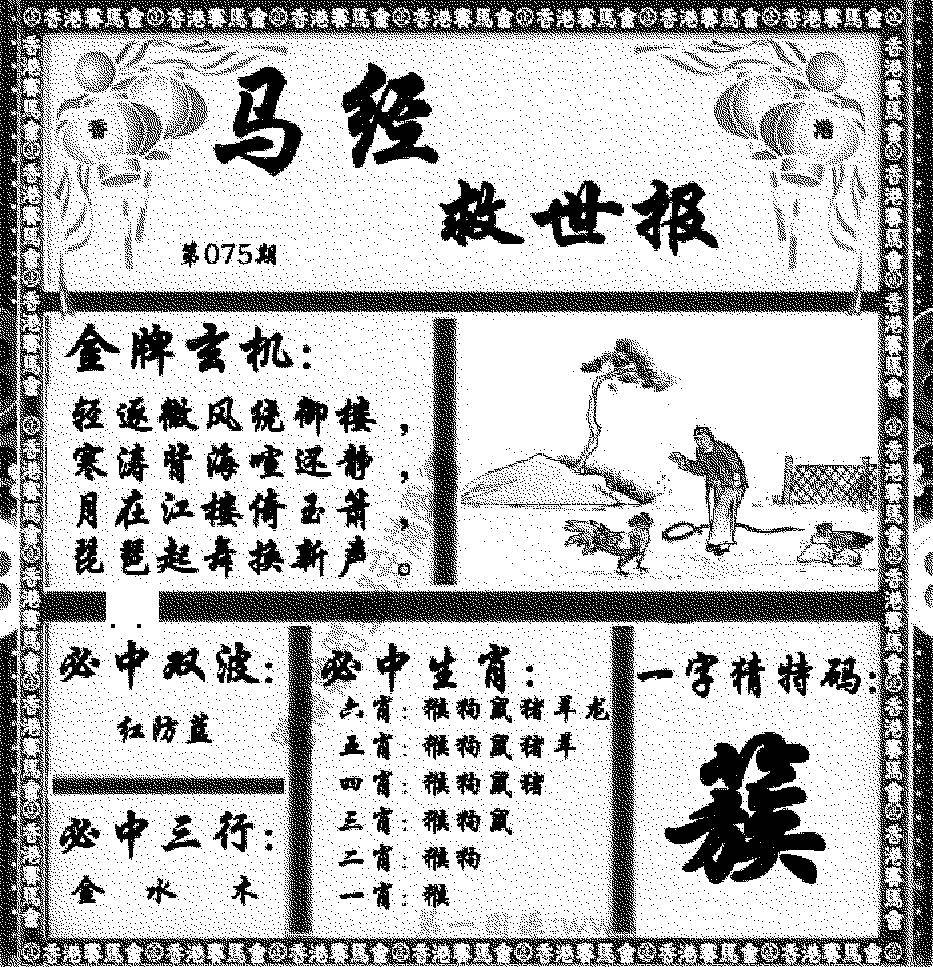 香港賽馬會 香港賽馬會 香港賽馬會 香港賽馬會 香港賽馬會 香港賽馬會 香港賽馬會
香
港
马经
救世报
第075期
金牌玄机:
轻逐微风绕御楼，
寒涛背海喧还静，
月在江楼倚玉箫，
琵琶起舞换新声。
必中双波:
红防蓝
必中三行:
金 水 木
必中生肖:
六肖: 猴狗鼠猪羊龙
五肖: 猴狗鼠猪羊
四肖: 猴狗鼠猪
三肖: 猴狗鼠
二肖: 猴狗
一肖: 猴
一字猜特码:
簇
香港賽馬會 香港賽馬會 香港賽馬會 香港賽馬會 香港賽馬會 香港賽馬會 香港賽馬會